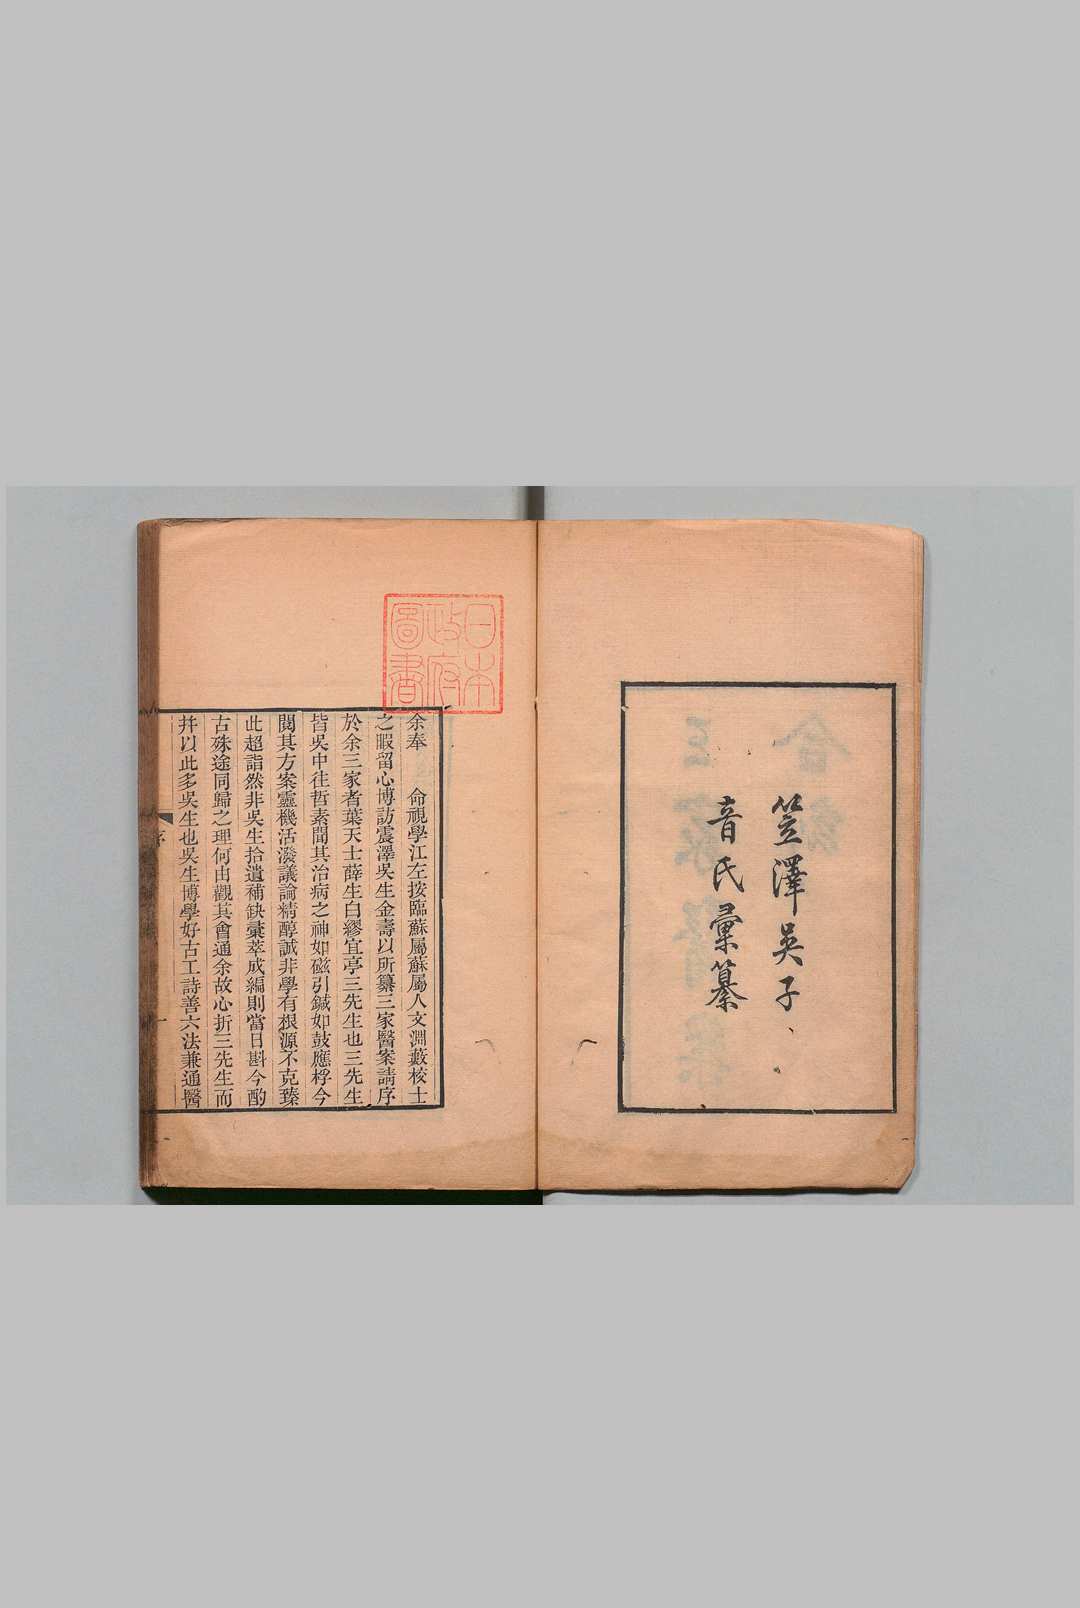 笠澤吳子
音氏彙纂
日本
政府
圖書
余奉　命視學江左按臨蘇屬蘇屬人文淵藪校士
之暇留心博訪震澤吳生金壽以所纂三家醫案請序
於余三家者葉天士薛生白繆宜亭三先生也三先生
皆吳中往哲素聞其治病之神如磁引鍼如鼓應桴今
閱其方案靈機活潑議論精醇誠非學有根源不克臻
此超詣然非吳生拾遺補缺彙萃成編則當日斟今酌
古殊途同歸之理何由觀其會通余故心折三先生而
幷以此多吳生也吳生博學好古工詩善六法兼通醫
序
一